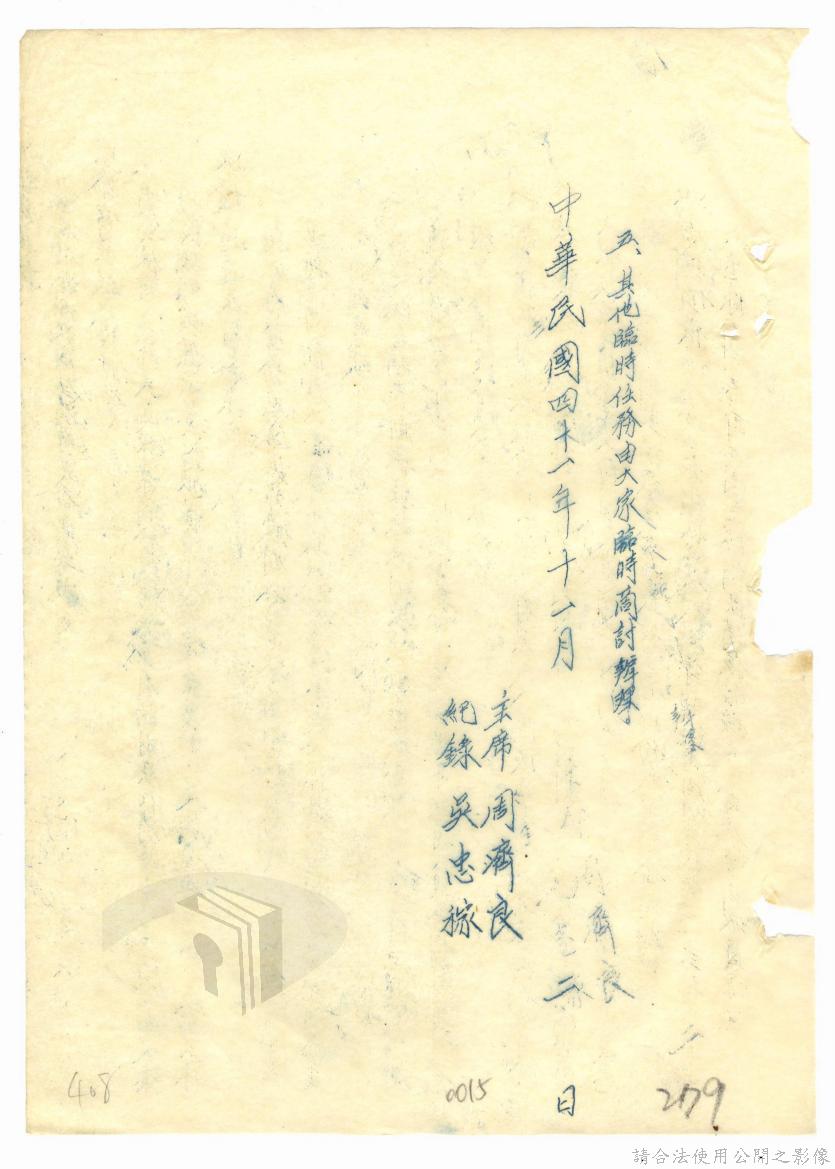 五、其他臨時任務由大家臨時商討辦理
中華民國四十一年十一月二日
主席 周濟良
紀錄 吳忠稼
408
0015
279
請合法使用公開之影像